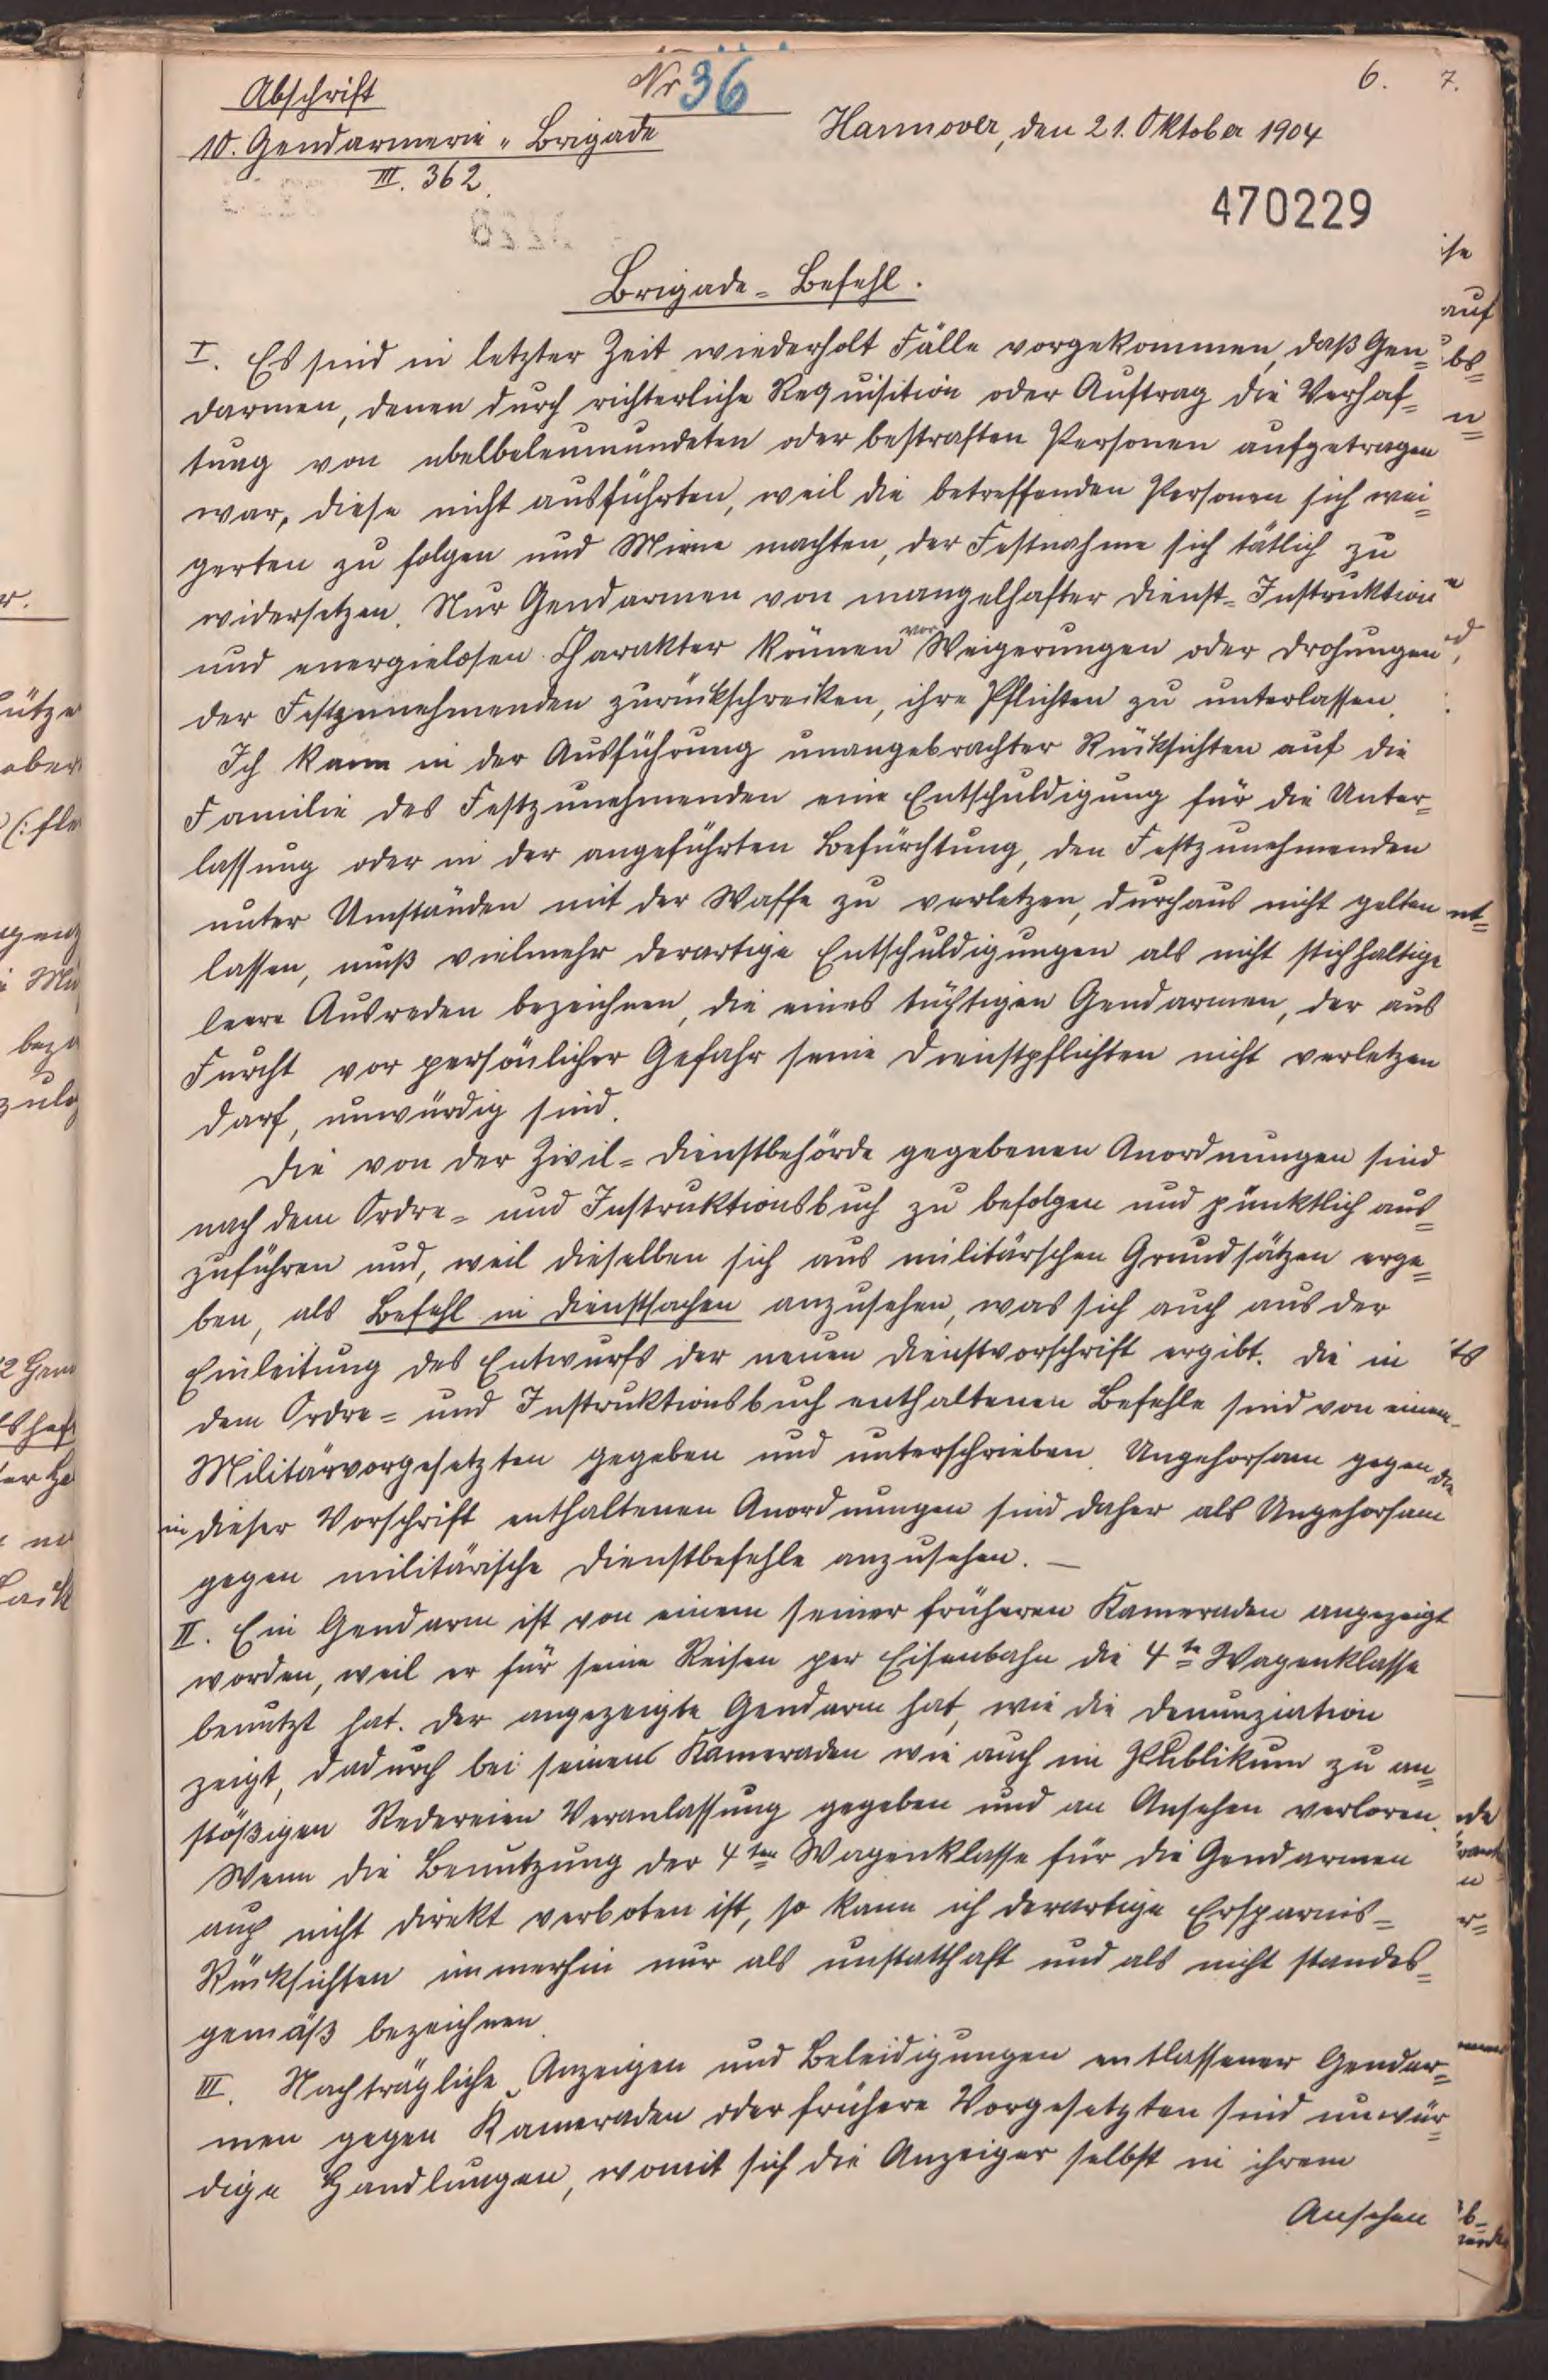 Abschrift
Nr 36
6. 7.
10. Gendarmerie-Brigade
Hannover, den 21. Oktober 1904
III. 362.
470229
Brigade-Befehl.
I. Es sind in letzter Zeit wiederholt Fälle vorgekommen, daß Gen=
darmen, denen durch richterliche Requisition oder Auftrag die Verhaf=
tung von übelbeleumundeten oder bestraften Personen aufgetragen
war, diese nicht ausführten, weil die betreffenden Personen sich wei=
gerten zu folgen und Miene machten, der Festnahme sich tätlich zu
widersetzen. Nur Gendarmen von mangelhafter Dienst-Instruktion
und energielosen Charakter können vor Weigerungen oder Drohungen
der Festzunehmenden zurückschrecken, ihre Pflichten zu unterlassen.
Ich kann in der Ausführung unangebrachter Rücksichten auf die
Familie des Festzunehmenden eine Entschuldigung für die Unter=
lassung oder in der angeführten Befürchtung, den Festzunehmenden
unter Umständen mit der Waffe zu verletzen, durchaus nicht gelten
lassen, muß vielmehr derartige Entschuldigungen als nicht stichhaltige
leere Ausreden bezeichnen, die eines tüchtigen Gendarmen, der aus
Furcht vor persönlicher Gefahr seine Dienstpflichten nicht verletzen
darf, unwürdig sind.
Die von der Zivil=Dienstbehörde gegebenen Anordnungen sind
nach dem Ordre= und Instruktionsbuch zu befolgen und pünktlich aus=
zuführen und, weil dieselben sich aus militärschen Grundsätzen erge=
ben, als Befehl in Dienstsachen anzusehen, was sich auch aus der
Einleitung des Entwurfs der neuen Dienstvorschrift ergibt. Die in
dem Ordre= und Instruktionsbuch enthaltenen Befehle sind von einem
Militärvorgesetzten gegeben und unterschrieben. Ungehorsam gegen die
in dieser Vorschrift enthaltenen Anordnungen sind daher als Ungehorsam
gegen militärische Dienstbefehle anzusehen. —
II. Ein Gendarm ist von einem seiner früheren Kameraden angezeigt
worden, weil er für seine Reisen per Eisenbahn die 4te Wagenklasse
benutzt hat. Der angezeigte Gendarm hat, wie die Denunziation
zeigt, dadurch bei seinen Kameraden wie auch im Publikum zu an=
stößigen Redereien Veranlassung gegeben und an Ansehen verloren.
Wenn die Benutzung der 4ten Wagenklasse für die Gendarmen
auch nicht direkt verboten ist, so kann ich derartige Ersparnis=
Rücksichten immerhin nur als unstatthaft und als nicht standes=
gemäß bezeichnen.
III. Nachträgliche Anzeigen und Beleidigungen entlassener Gendar=
men gegen Kameraden oder frühere Vorgesetzten sind unwür=
dige Handlungen, womit sich die Anzeiger selbst in ihrem
Ansehen